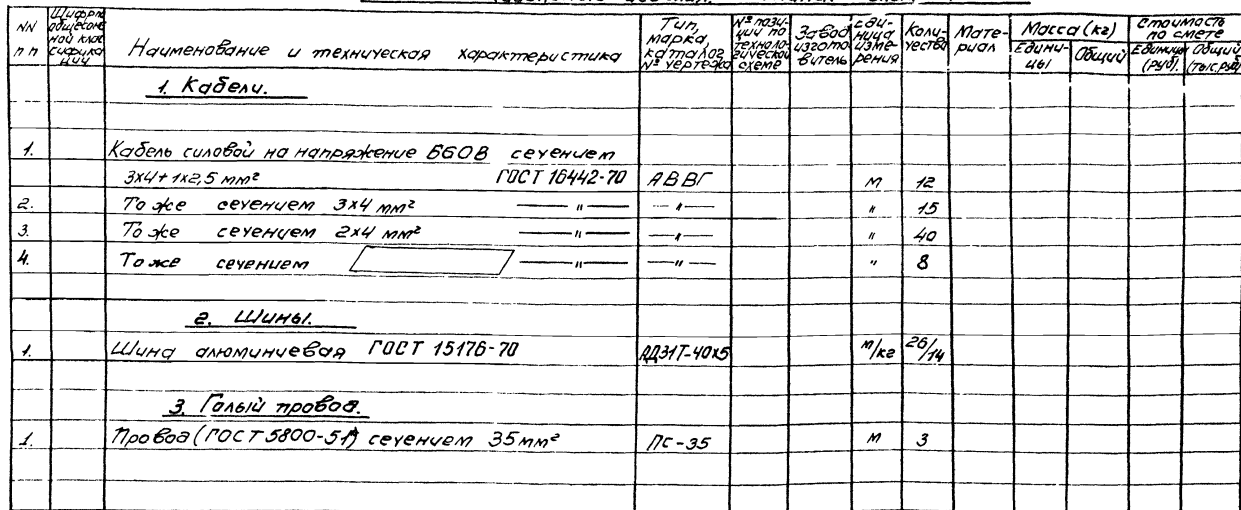 NN пп
Шифры общесоюзной классификации
Наименование и техническая характеристика
Тип, марка, каталог № чертежа
№ позиции по технологической схеме
Завод изготовитель
Единица измерения
Количество
Материал
Масса (кг)
Единицы
Общий
Стоимость по смете
Единицы (руб).
Общий (тыс. руб)
1. Кабели.
1. Кабель силовой на напряжение 660В сечением
3х4+1х2,5 мм² ГОСТ 16442-70 АВВГ м 12
2. То же сечением 3х4 мм² —"— —"— " 15
3. То же сечением 2х4 мм² —"— —"— " 40
4. То же сечением —"— —"— " 8
2. Шины.
1. Шина алюминиевая ГОСТ 15176-70 АД31Т-40х5 м/кг 26/14
3. Голый провод.
1. Провод (ГОСТ 5800-51) сечением 35 мм² ПС-35 м 3